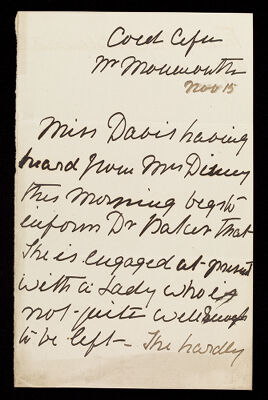 Coed Cefn
Nr Monmouth
Nov 15
Miss Davis having
heard from Mrs Disney
this morning begs to
inform Dr Baker that
She is engaged at present
with a Lady who is
not quite well enough
to be left - She hardly